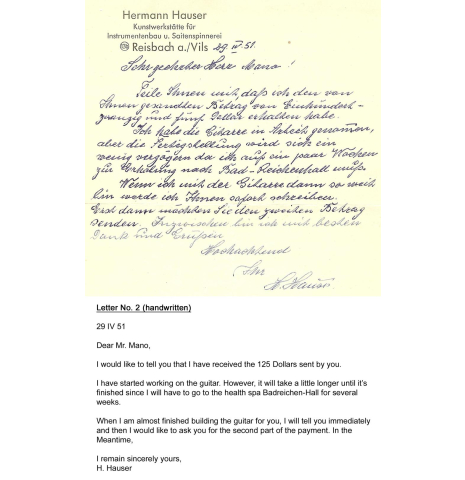 Hermann Hauser
Kunstwerkstätte für
Instrumentenbau u. Saitenspinnerei
Reisbach a./Vils 29 IV 51.
Sehr geehrter Herr Mano!
Teile Ihnen mit, daß ich den von
Ihnen gesandten Betrag von Einhundert-
zwanzig und fünf Dollar erhalten habe.
Ich habe die Gitarre in Arbeit genommen,
aber die Fertigstellung wird sich ein
wenig verzögern da ich auf ein paar Wochen
zur Erholung nach Bad-Reichenhall muß.
Wenn ich mit der Gitarre dann so weit
bin werde ich Ihnen sofort schreiben.
Erst dann möchten Sie den zweiten Betrag
senden. Inzwischen bin ich mit besten
Dank und Grüßen
Hochachtend
Ihr
H. Hauser
Letter No. 2 (handwritten)
29 IV 51
Dear Mr. Mano,
I would like to tell you that I have received the 125 Dollars sent by you.
I have started working on the guitar. However, it will take a little longer until it's
finished since I will have to go to the health spa Badreichen-Hall for several
weeks.
When I am almost finished building the guitar for you, I will tell you immediately
and then I would like to ask you for the second part of the payment. In the
Meantime,
I remain sincerely yours,
H. Hauser